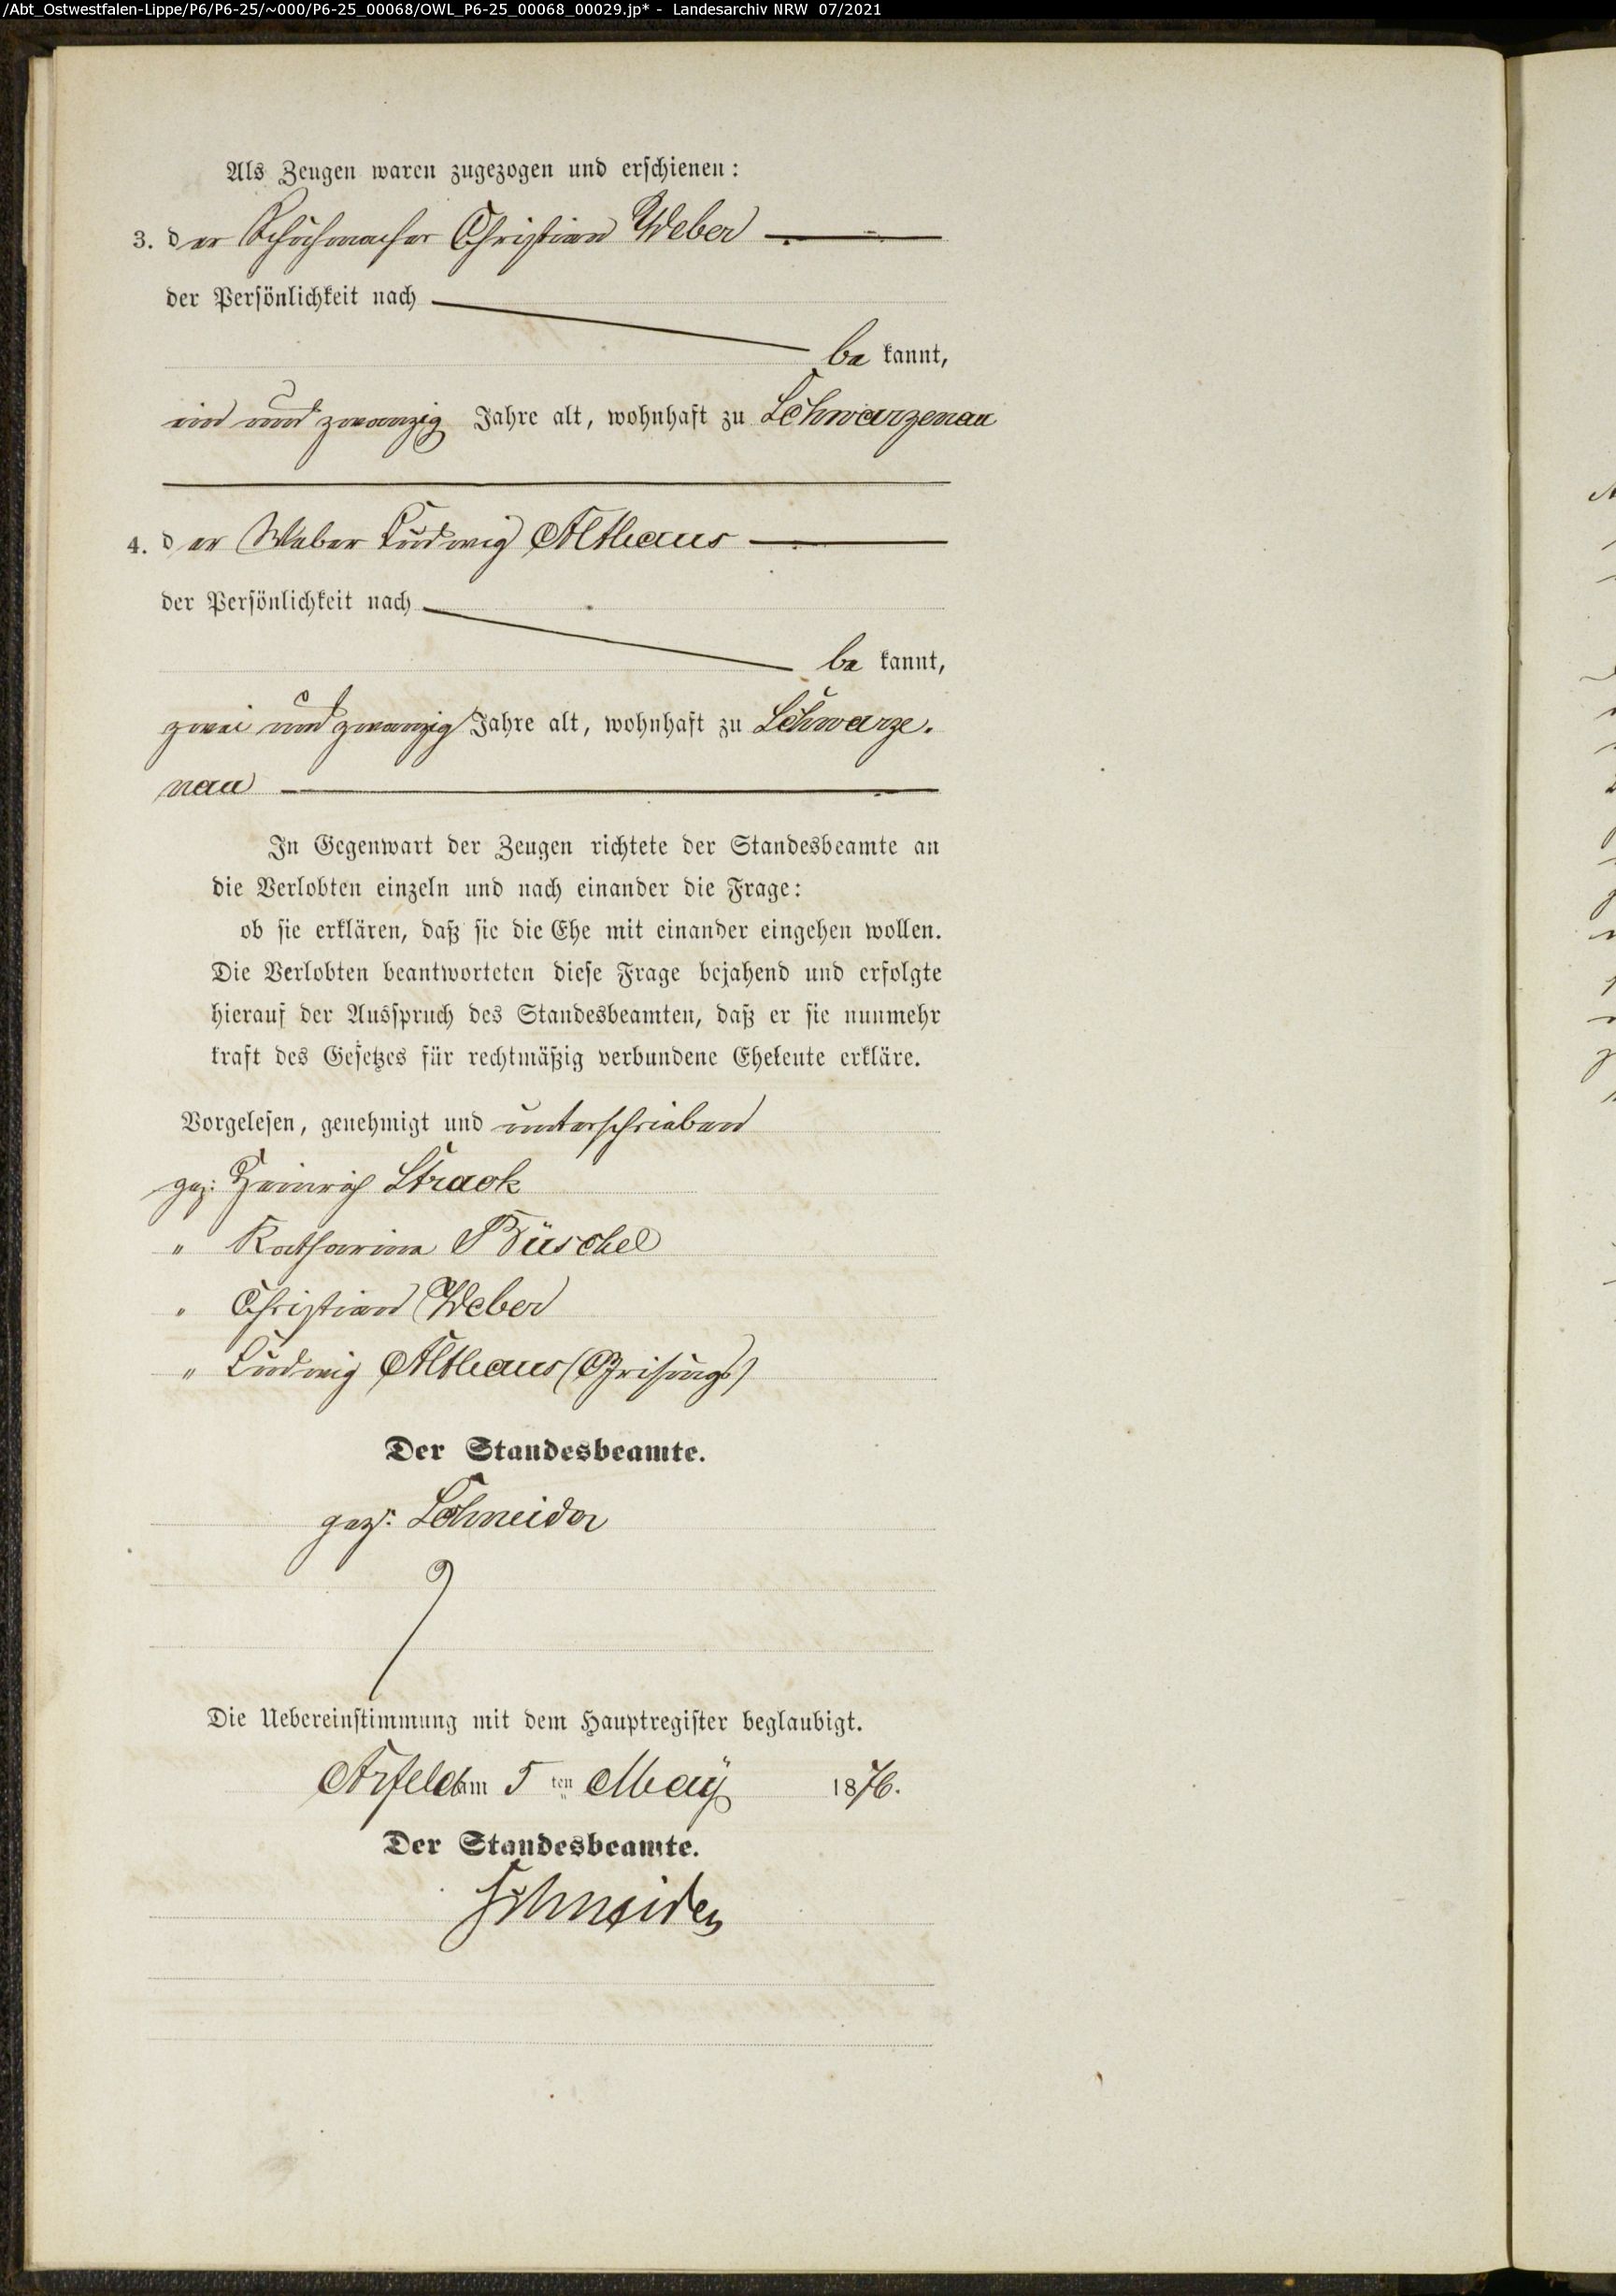 /Abt_Ostwestfalen-Lippe/P6/P6-25/~000/P6-25_00068/OWL_P6-25_00068_00029.jp* - Landesarchiv NRW 07/2021
Als Zeugen waren zugezogen und erschienen:
3. der Schuhmacher Christian Weber
der Persönlichkeit nach
be kannt,
ein und zwanzig Jahre alt, wohnhaft zu Schwarzenau
4. der Weber Ludwig Althaus
der Persönlichkeit nach
be kannt,
zwei und zwanzig Jahre alt, wohnhaft zu Schwarze-
nau
In Gegenwart der Zeugen richtete der Standesbeamte an
die Verlobten einzeln und nach einander die Frage:
ob sie erklären, daß sie die Ehe mit einander eingehen wollen.
Die Verlobten beantworteten diese Frage bejahend und erfolgte
hierauf der Ausspruch des Standesbeamten, daß er sie nunmehr
kraft des Gesetzes für rechtmäßig verbundene Eheleute erkläre.
Vorgelesen, genehmigt und unterschrieben
gez: Heinrich Strack
" Katharina Büschel
" Christian Weber
" Ludwig Althaus
Der Standesbeamte.
gez. Schneider
Die Uebereinstimmung mit dem Hauptregister beglaubigt.
Arfeld am 5 ten May 1876.
Der Standesbeamte.
Schneider